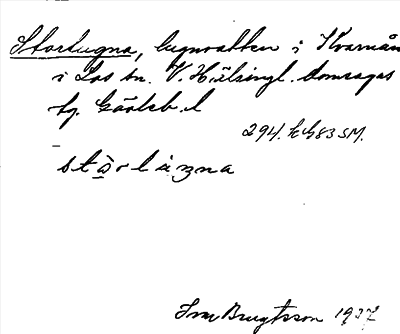 Storlugna, lugnvatten i Kvarnån
i Los sn. V. Hälsingl. domsagas
tg. Gävleb. l
294. kh 83 SM.
stọ̈rlúgna
Ivar Bengtsson 1937